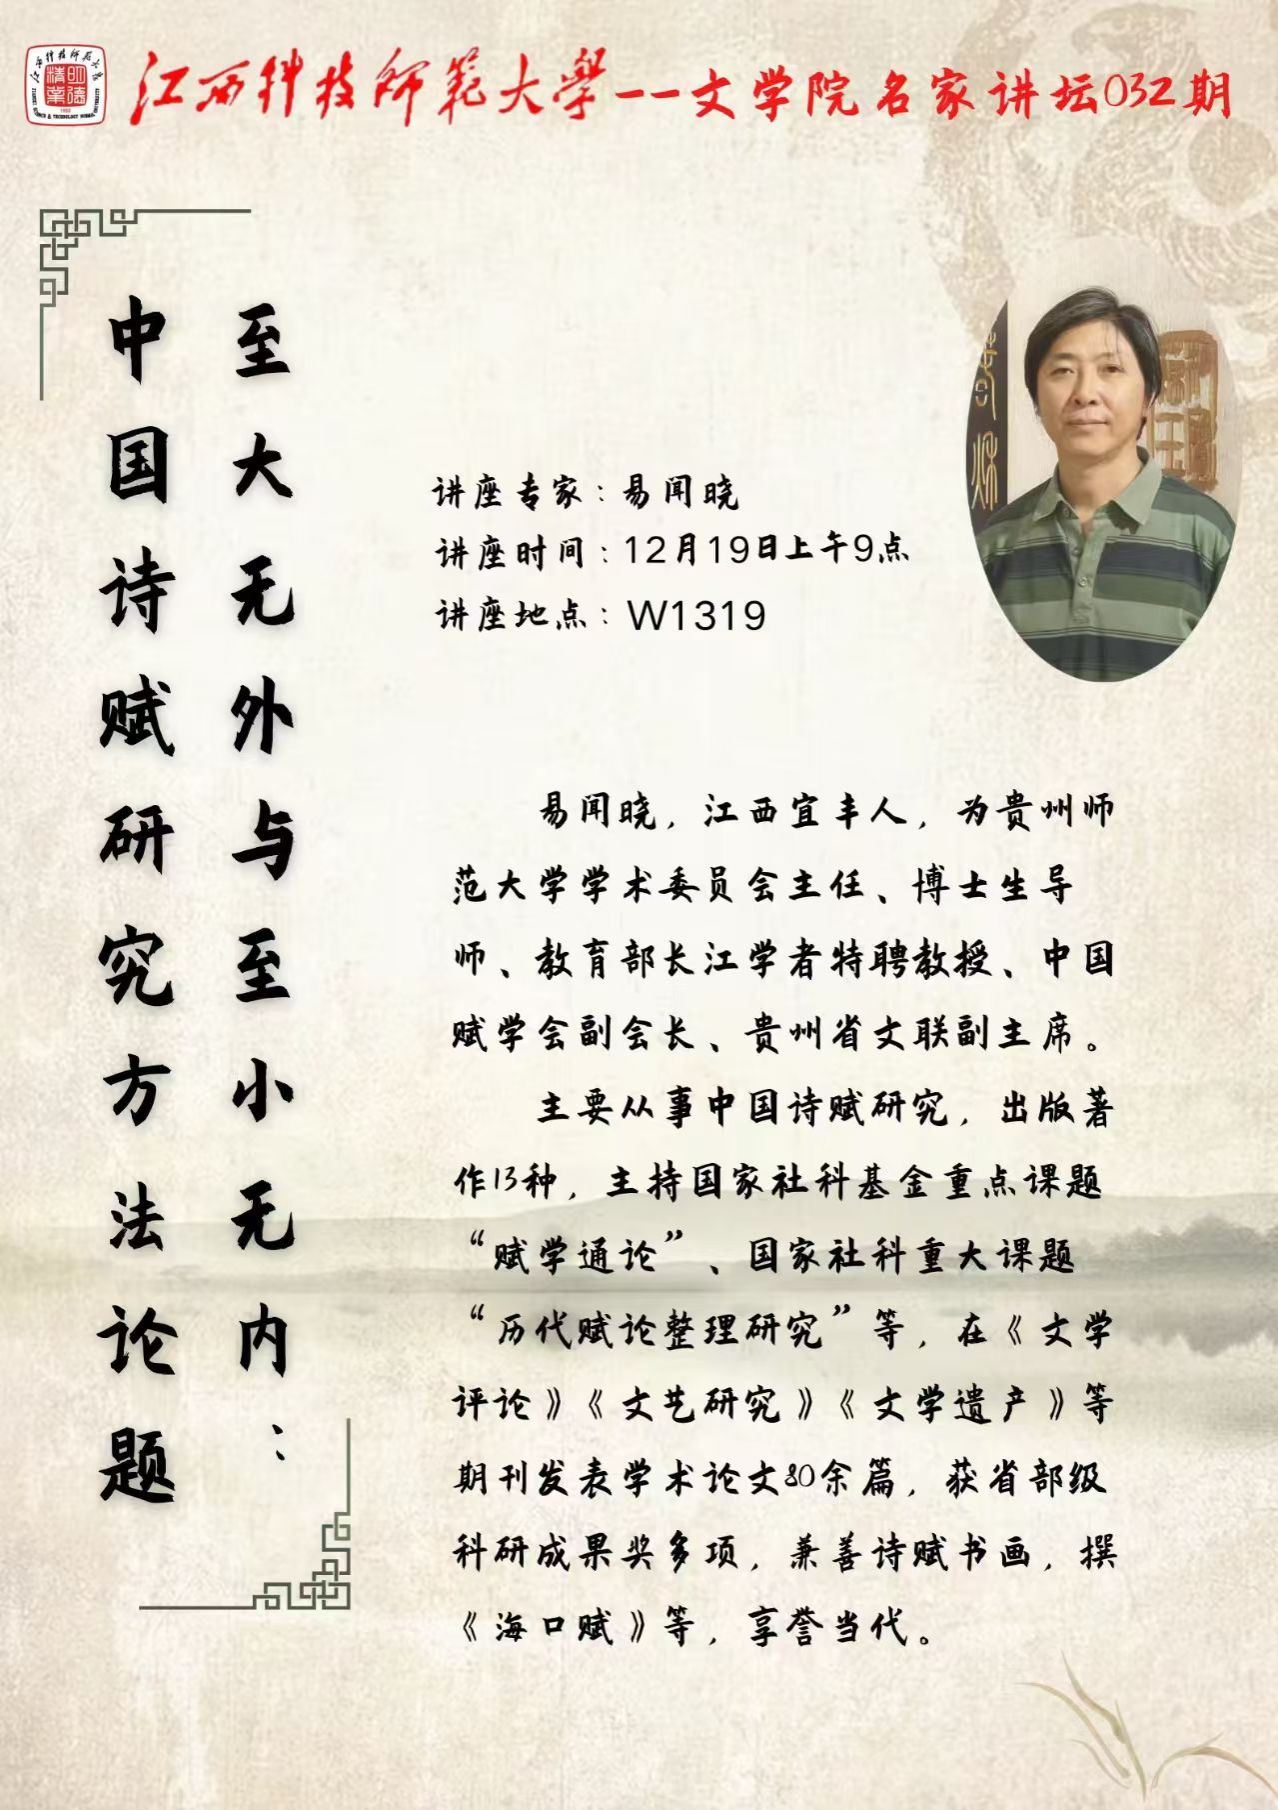 江西科技师范大学--文学院名家讲坛032期
至大无外与至小无内：
中国诗赋研究方法论题
讲座专家：易闻晓
讲座时间：12月19日上午9点
讲座地点：W1319
易闻晓，江西宜丰人，为贵州师
范大学学术委员会主任、博士生导
师、教育部长江学者特聘教授、中国
赋学会副会长、贵州省文联副主席。
主要从事中国诗赋研究，出版著
作13种，主持国家社科基金重点课题
“赋学通论”、国家社科重大课题
“历代赋论整理研究”等，在《文学
评论》《文艺研究》《文学遗产》等
期刊发表学术论文80余篇，获省部级
科研成果奖多项，兼善诗赋书画，撰
《海口赋》等，享誉当代。